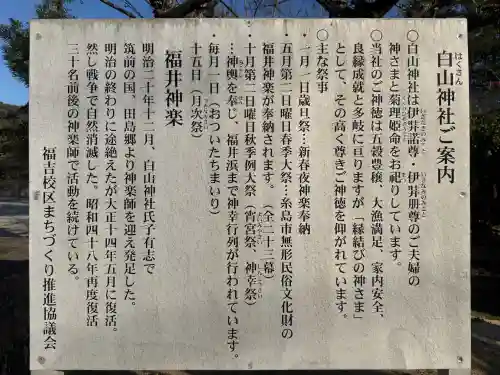 白山神社ご案内
はくさん
○白山神社は伊弉諾尊・伊弉冊尊のご夫婦の
いざなぎのみこと
いざなみのみこと
神さまと菊理姫命をお祀りしています。
○当社のご神徳は五穀豊穣、大漁満足、家内安全、
良縁成就と多岐に亘りますが「縁結びの神さま」
として、その高く尊きご神徳を仰がれています。
○主な祭事
・一月一日歳旦祭…新春夜神楽奉納
・五月第二日曜日春季大祭…糸島市無形民俗文化財の
福井神楽が奉納されます。（全二十三幕）
・十月第二日曜日秋季例大祭（宵宮祭、神幸祭）
よいみやさい
しんこうさい
…神輿を奉じ、福井浜まで神幸行列が行われています。
・毎月一日（おついたちまいり）
十五日（月次祭）
つきなみさい
福井神楽
明治二十年十二月、白山神社氏子有志で
筑前の国、田島郷より神楽師を迎え発足した。
明治の終わりに途絶えたが大正十四年五月に復活。
然し戦争で自然消滅した。昭和四十八年再度復活
三十名前後の神楽師で活動を続けている。
福吉校区まちづくり推進協議会